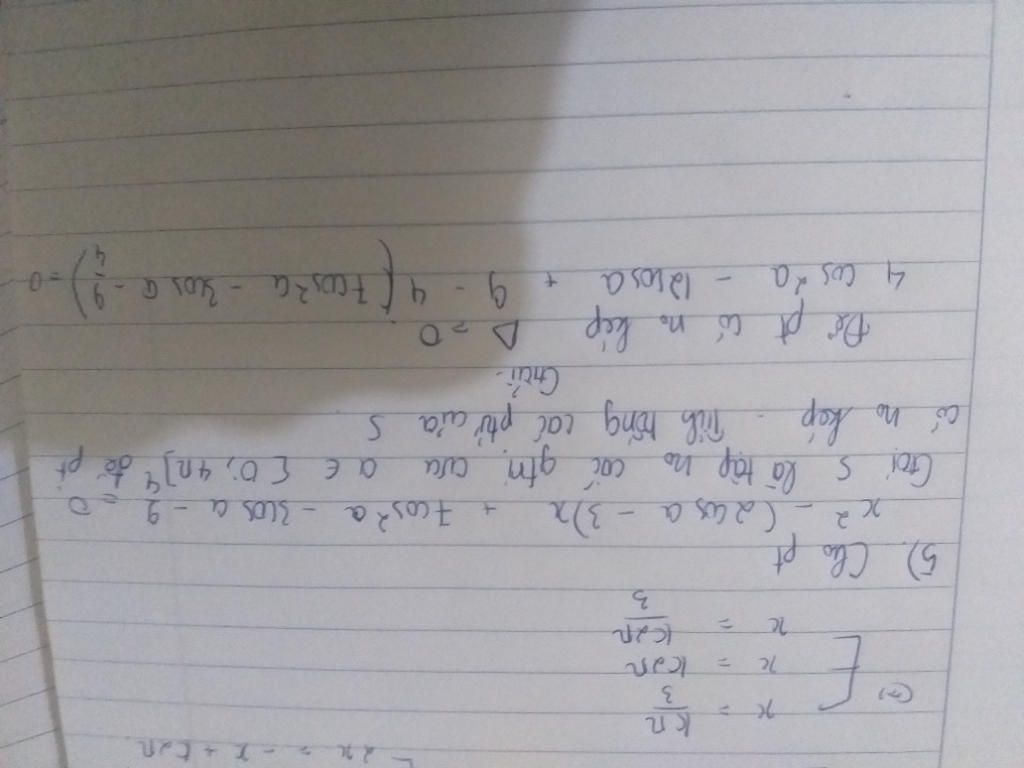 2x = -x + k2π
(=) [ x = kπ/3
x = k2π
x = k2π/3
5) Cho pt
x² - (2cos a - 3)x + 7cos²a - 3cos a - 9/4 = 0
Gọi S là tập no các gtrị của a ∈ [0; 4π] để pt
có no kép. Tính tổng các ptử của S
Giải.
Để pt có no kép Δ = 0
4 cos²a - 12cos a + 9 - 4 (7cos²a - 3cos a - 9/4) = 0